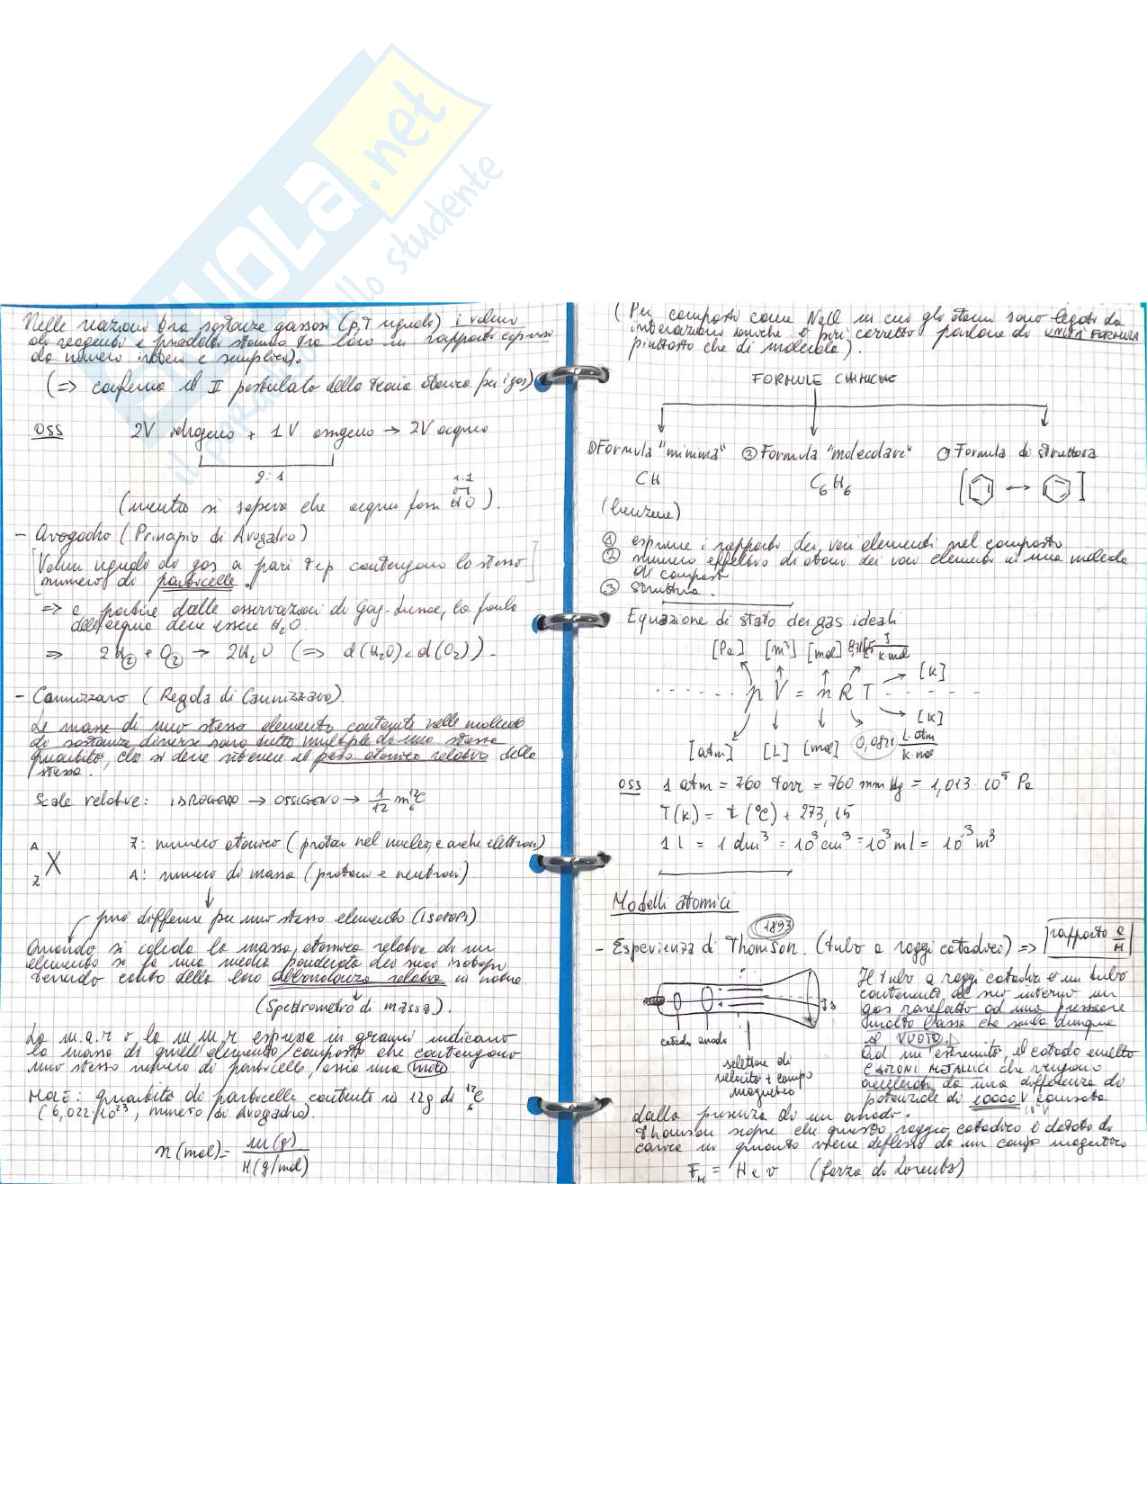 Nelle reazioni fra sostanze gassose (p,T uguali) i volumi
di reagenti e prodotti stanno tra loro in rapporti espressi
da numeri interi e semplici).
(=> conferma il II postulato della teoria atomica per i gas)
OSS 2V idrogeno + 1V ossigeno → 2V acqua
2:1
1:1
(mentre si sapeva che acqua fosse HO).
- Avogadro (Principio di Avogadro)
[Volumi uguali di gas a pari T e p contengono lo stesso
numero di particelle.]
=> a partire dalle osservazioni di Gay-Lussac, la formula
dell'acqua deve essere H2O
=> 2H2 + O2 → 2H2O (=> d(H2O) < d(O2)).
- Cannizzaro (Regola di Cannizzaro).
Le masse di uno stesso elemento contenute nelle molecole
di sostanze diverse sono tutte multiple di una stessa
quantità, che si deve ritenere il peso atomico relativo dello
stesso.
Scale relative: IDROGENO → OSSIGENO → 1/12 m 12C
A
Z X
Z: numero atomico (protoni nel nucleo, e anche elettroni)
A: numero di massa (protoni e neutroni)
può differire per uno stesso elemento (ISOTOPI)
Quando si calcola la massa atomica relativa di un
elemento si fa una media ponderata dei suoi isotopi
tenendo conto della loro abbondanza relativa in natura
(Spettrometro di massa).
La m.a.r o la m.m.r espressa in grammi indicano
la massa di quell'elemento/composto che contengono
uno stesso numero di particelle, ossia una mole
MOLE: quantità di particelle contenute in 12g di 12C
(6,022·10^23, numero di Avogadro).
n(mol) = m(g) / M(g/mol)
(Per composti come NaCl in cui gli atomi sono legati da
interazioni ioniche è più corretto parlare di UNITÀ FORMULA
piuttosto che di molecola).
FORMULE CHIMICHE
① Formula "minima" ② Formula "molecolare" ③ Formula di struttura
CH C6H6
(benzene)
① esprime i rapporti dei vari elementi nel composto
② numero effettivo di atomi dei vari elementi di una molecola
di composto
③ struttura.
Equazione di stato dei gas ideali
[Pa] [m³] [mol] J/k mol [K]
pV = nRT
[atm] [L] [mol] 0,0821 L atm/k mol [K]
OSS 1 atm = 760 torr = 760 mm Hg = 1,013·10^5 Pa
T(K) = t(°C) + 273,15
1 l = 1 dm³ = 10³ cm³ = 10³ ml = 10^-3 m³
Modelli atomici
1893
- Esperienza di Thomson. (tubo a raggi catodici) => rapporto e/m
catodo anodo
selettore di
velocità + campo
magnetico
Il tubo a raggi catodici è un tubo
contenente al suo interno un
gas rarefatto ad una pressione
molto bassa che sembra dunque
il VUOTO.
Ad un'estremità, il catodo emette
che vengono
accelerati da una differenza di
potenziale di 10000 V causata
dalla presenza di un anodo.
Thomson scopre che questo raggio catodico è dotato di
carica in quanto viene deflesso da un campo magnetico
FM = H e v (forza di Lorentz)